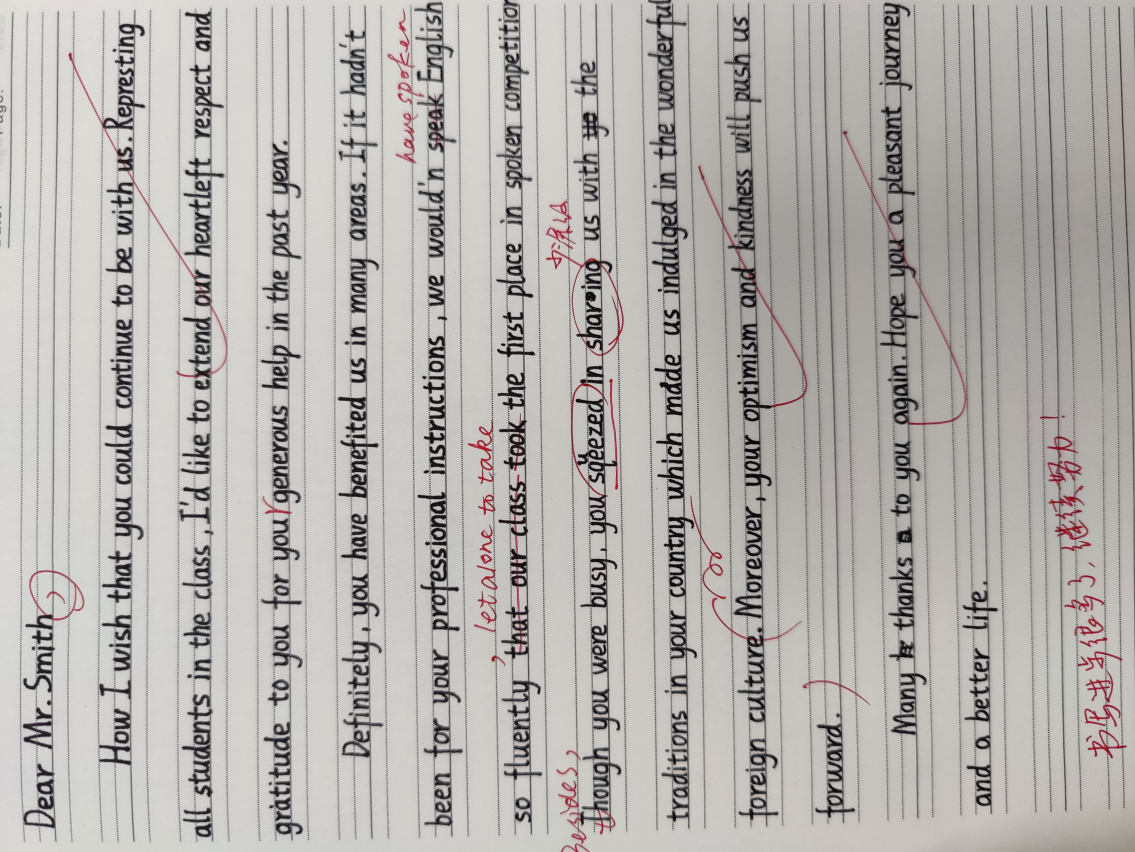 Dear Mr. Smith,
How I wish that you could continue to be with us. Represting
all students in the class, I'd like to extend our heartleft respect and
gratitude to you for your generous help in the past year.
Definitely, you have benefited us in many areas. If it hadn't
have spoken
been for your professional instructions, we would'n speak English
, let alone to take
so fluently that our class took the first place in spoken competition
Besides,
though you were busy, you squeezed in sharing us with the
traditions in your country which made us indulged in the wonderful
foreign culture. Moreover, your optimism and kindness will push us
forward.
Many thanks to you again. Hope you a pleasant journey
and a better life.
书写进步很多了，继续努力！